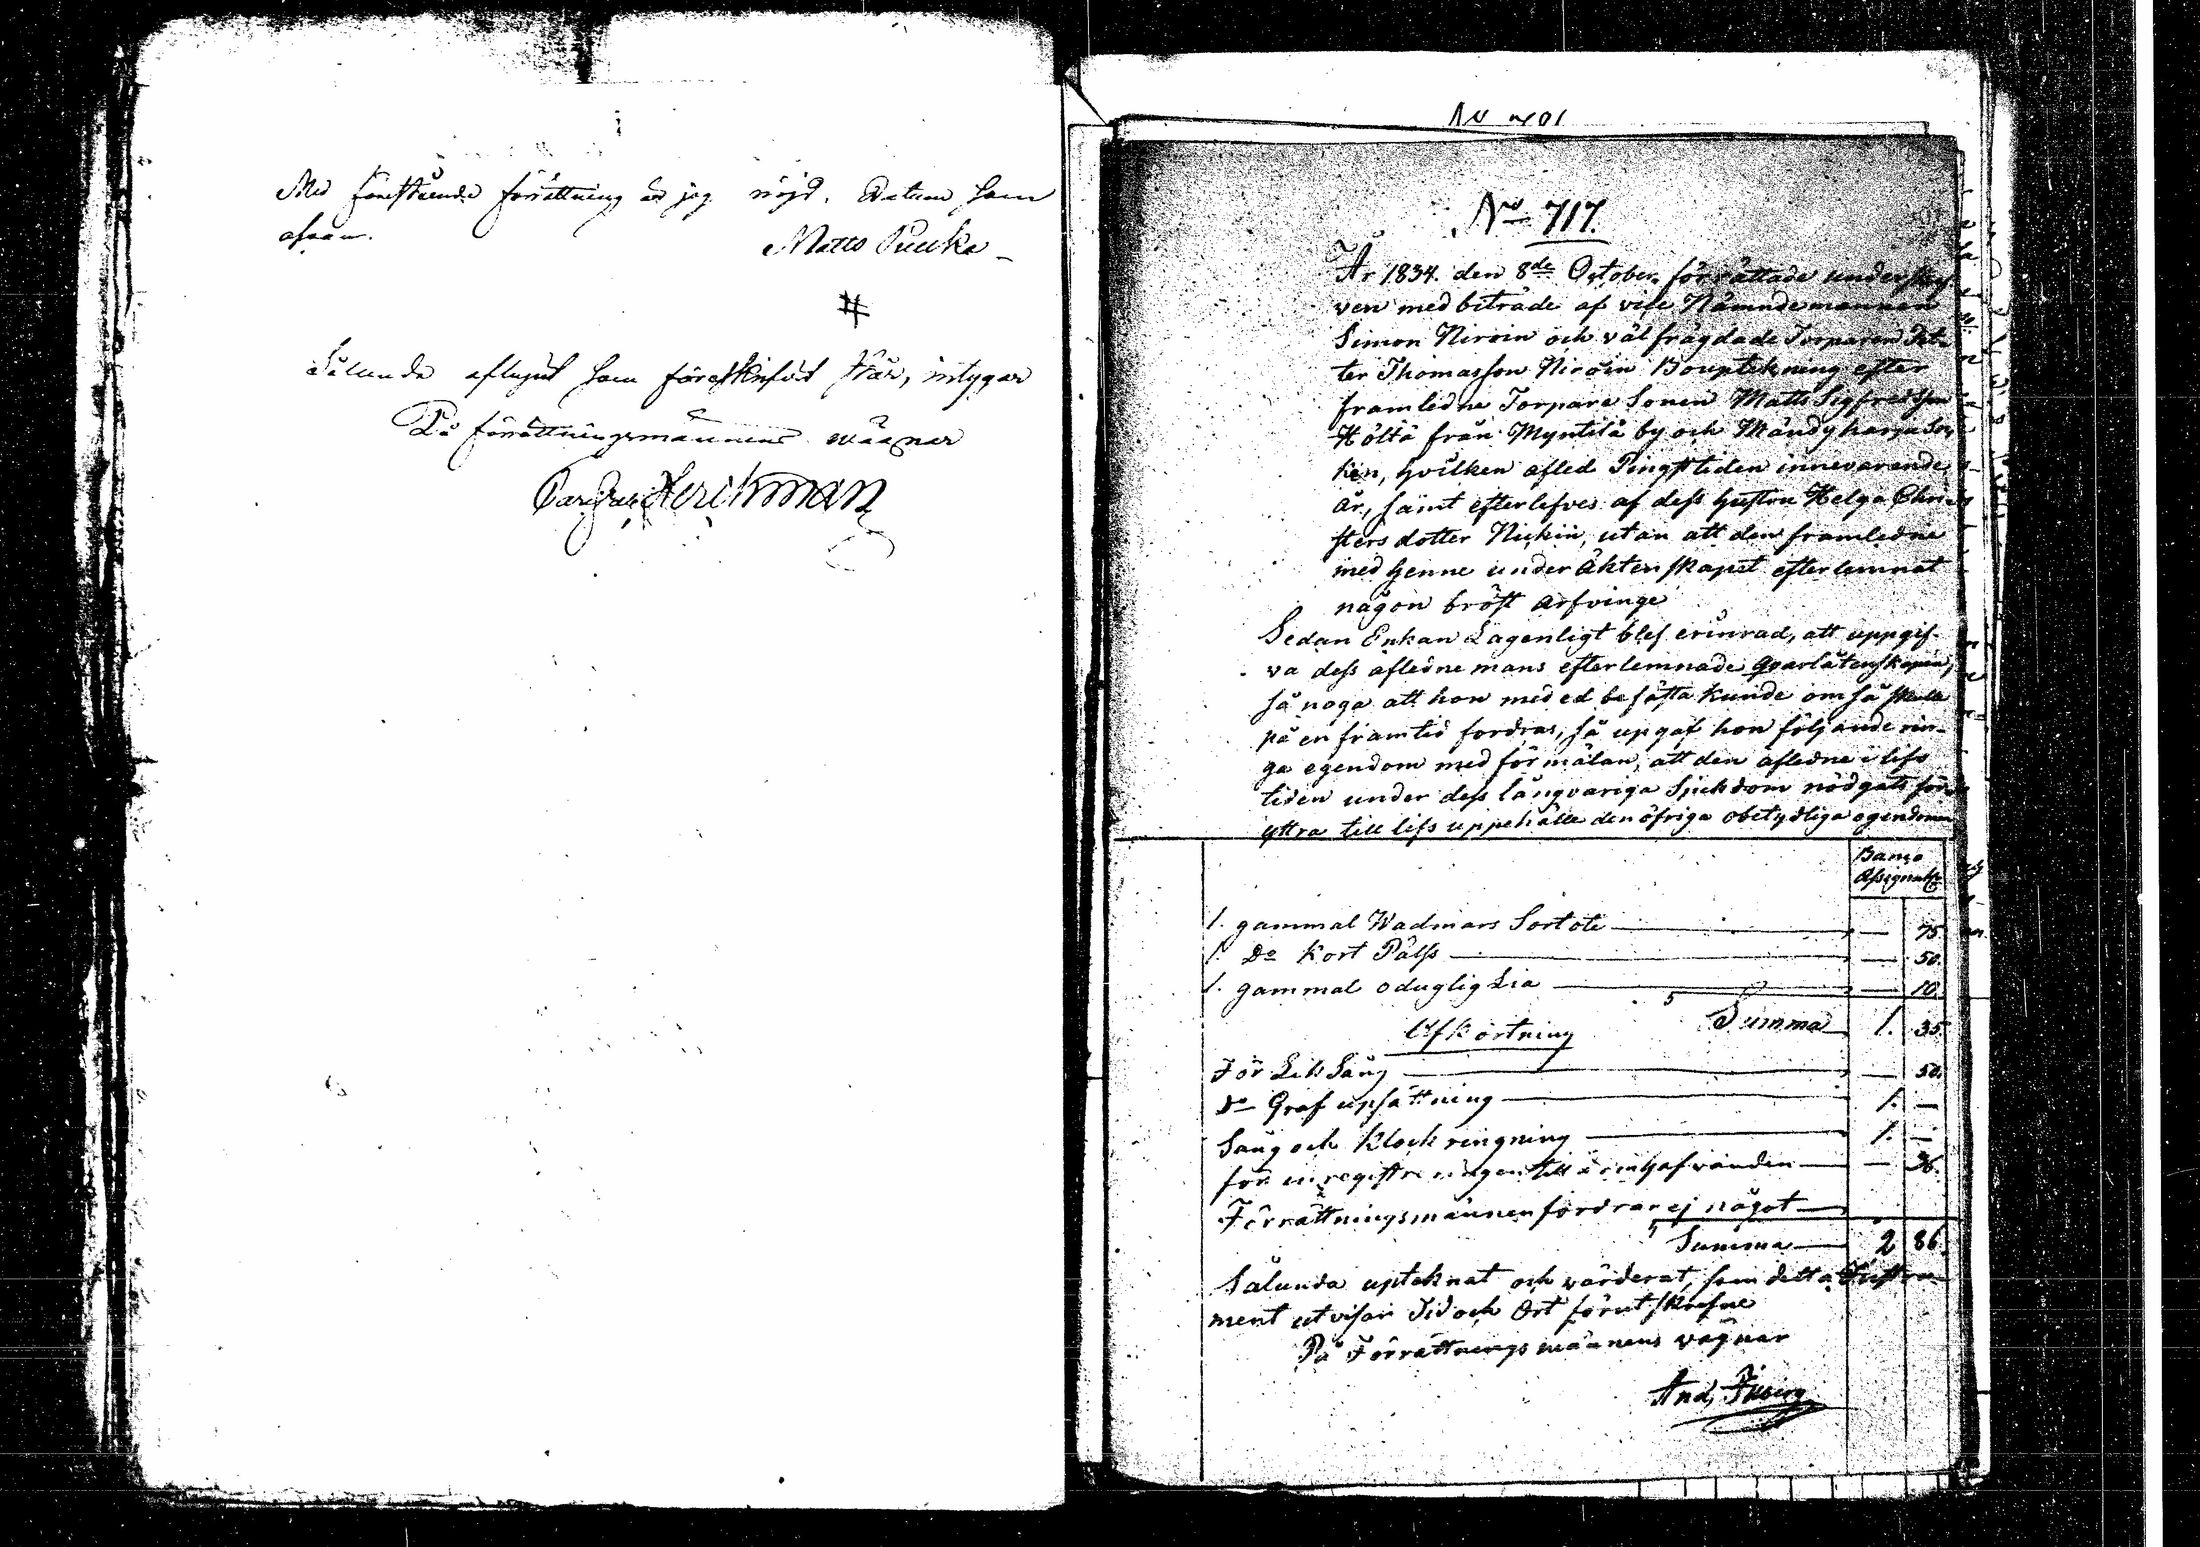 Med förestående förrättning är jag nöjd. Datum som
ofvan.
Matts Puuka
#
Sålunda aflupit som föreskrifvit står, intygar
På förrättningsmännens wägnar
No 717.
År 1834. den 8de October. förrättade underskrif
ven med biträde af vice Nämndemannen
Simon Niroin och välfrägdade Torparen Pet-
ter Thomasson Niroin Bouptekning efter
framledne Torpare Sonen Matts Sigfredsson
Höltä från Myntilä by och Mändyharju Soc-
ken, hvilken afled Pingsttiden innevarande
år, samt efterlefves af dess hustru Helga Chri-
sters dotter Nickin, utan att den framledne
med henne under äktenskapet efterlemnat
någon bröst arfvinge
Sedan Enkan Lagenligt blef erinrad, att uppgif-
va dess afledne mans efterlemnade qvarlåtenskapen,
så noga att hon med ed besätta kunde om så skulle
på en framtid fordras, så upgaf hon följande rin-
ga egendom med förmälan, att den afledne i lifs
tiden under dess långvariga Sjukdom nödgats för-
yttra till lifs uppehälle den öfriga obetydliga egendomen
Banco
Assignatr
1. gammal Wadmars Sortote — 75
1. Do Kort Pälss — 50.
1. gammal oduglig Lia — 10.
Summa 1. 35.
Afkortning
För Lik Sång — 50.
Do Graf upsättning 1. —
Sång och Klockringning 1. —
för inregistreringen till — 36.
Förrättningsmännen fordrar ej något
Summa 2 86.
Sålunda upteknat och värderat, som detta Instru-
ment utvisar Tid och Ort förutskrefne
På Förrättnings männens vägnar
And,